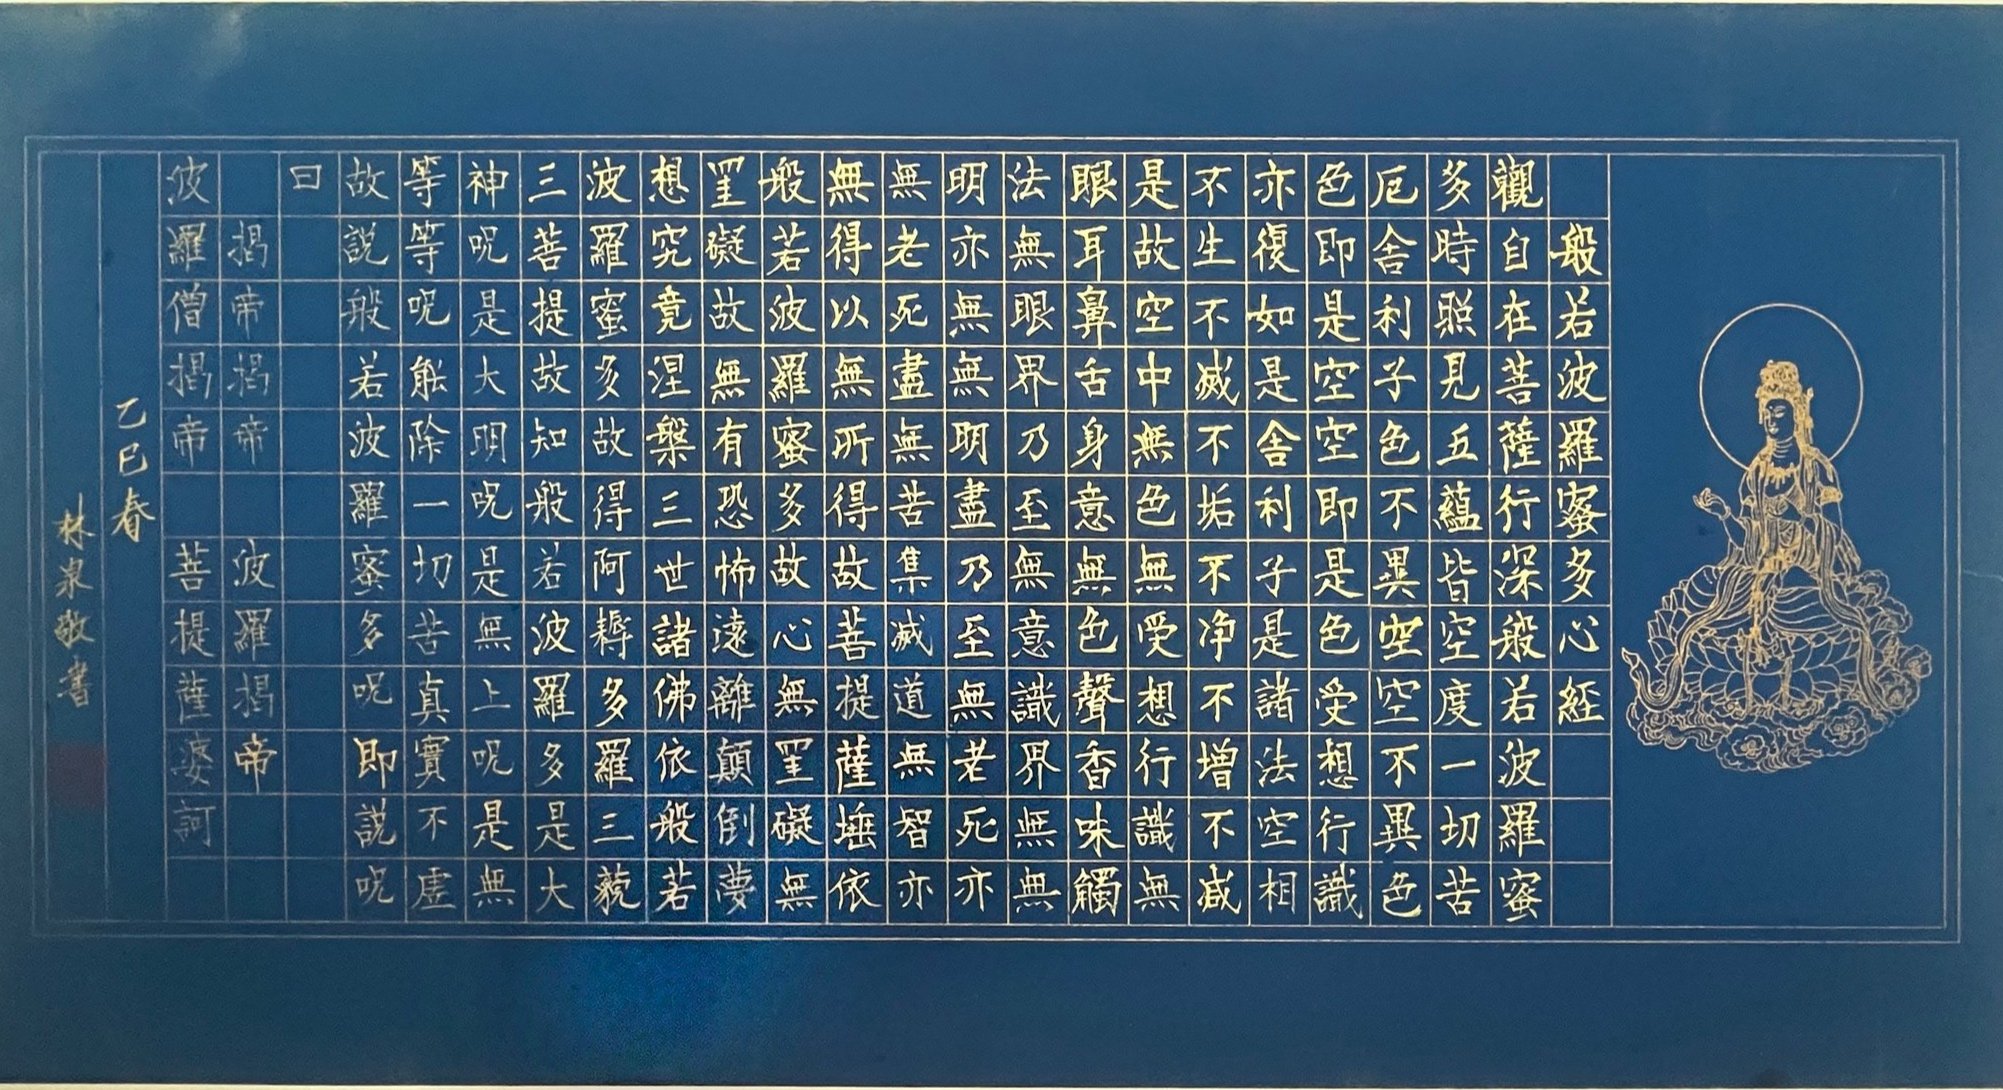 般若波羅蜜多心經
觀自在菩薩行深般若波羅蜜
多時照見五蘊皆空度一切苦
厄舍利子色不異空空不異色
色即是空空即是色受想行識
亦復如是舍利子是諸法空相
不生不滅不垢不净不增不減
是故空中無色無受想行識無
眼耳鼻舌身意無色聲香味觸
法無眼界乃至無意識界無無
明亦無無明盡乃至無老死亦
無老死盡無苦集滅道無智亦
無得以無所得故菩提薩埵依
般若波羅蜜多故心無罣礙無
罣礙故無有恐怖遠離顛倒夢
想究竟涅槃三世諸佛依般若
波羅蜜多故得阿耨多羅三藐
三菩提故知般若波羅多是大
神呪是大明呪是無上呪是無
等等呪能除一切苦真實不虛
故説般若波羅蜜多呪即説呪
曰
揭帝揭帝 波羅揭帝
波羅僧揭帝 菩提薩婆訶
乙巳春
林泉敬書